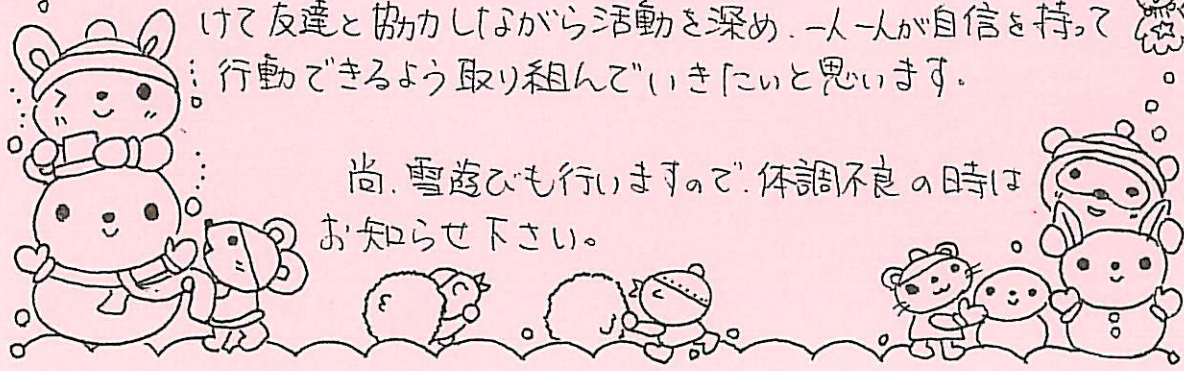 けて友達と協力しながら活動を深め、一人一人が自信を持って
行動できるよう取り組んでいきたいと思います。
尚、雪遊びも行いますので、体調不良の時は
お知らせ下さい。